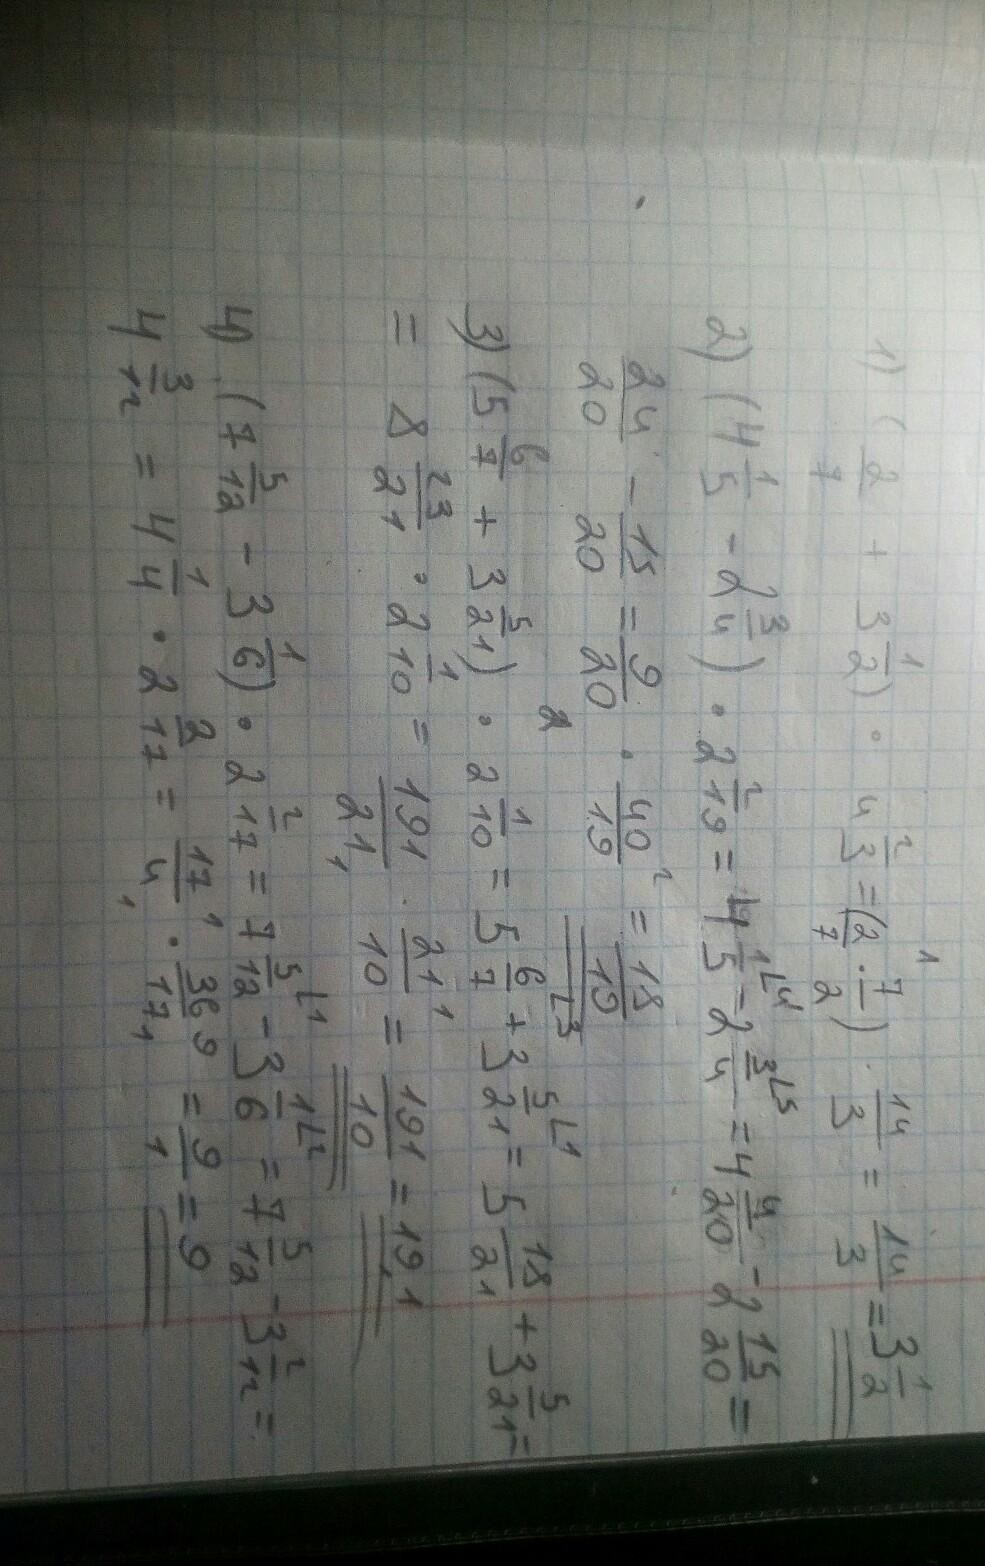 1) (2/7 + 3 1/2) · 4 2/3 = (2/7 · 7/2) · 14/3 = 14/3 = 3 1/2
2) (4 1/5 - 2 3/4) · 2 2/19 = 4 1/5 - 2 3/4 = 4 4/20 - 2 15/20 =
24/20 - 15/20 = 9/20 · 40/19 = 18/19
3) (5 6/7 + 3 5/21) · 2 1/10 = 5 6/7 + 3 5/21 = 5 18/21 + 3 5/21 =
= 8 23/21 · 2 1/10 = 191/21 · 21/10 = 191/10 = 19,1
4) (7 5/12 - 3 1/6) · 2 2/17 = 7 5/12 - 3 1/6 = 7 5/12 - 3 2/12 =
4 3/12 = 4 1/4 · 2 2/17 = 17/4 · 36/17 = 9/1 = 9